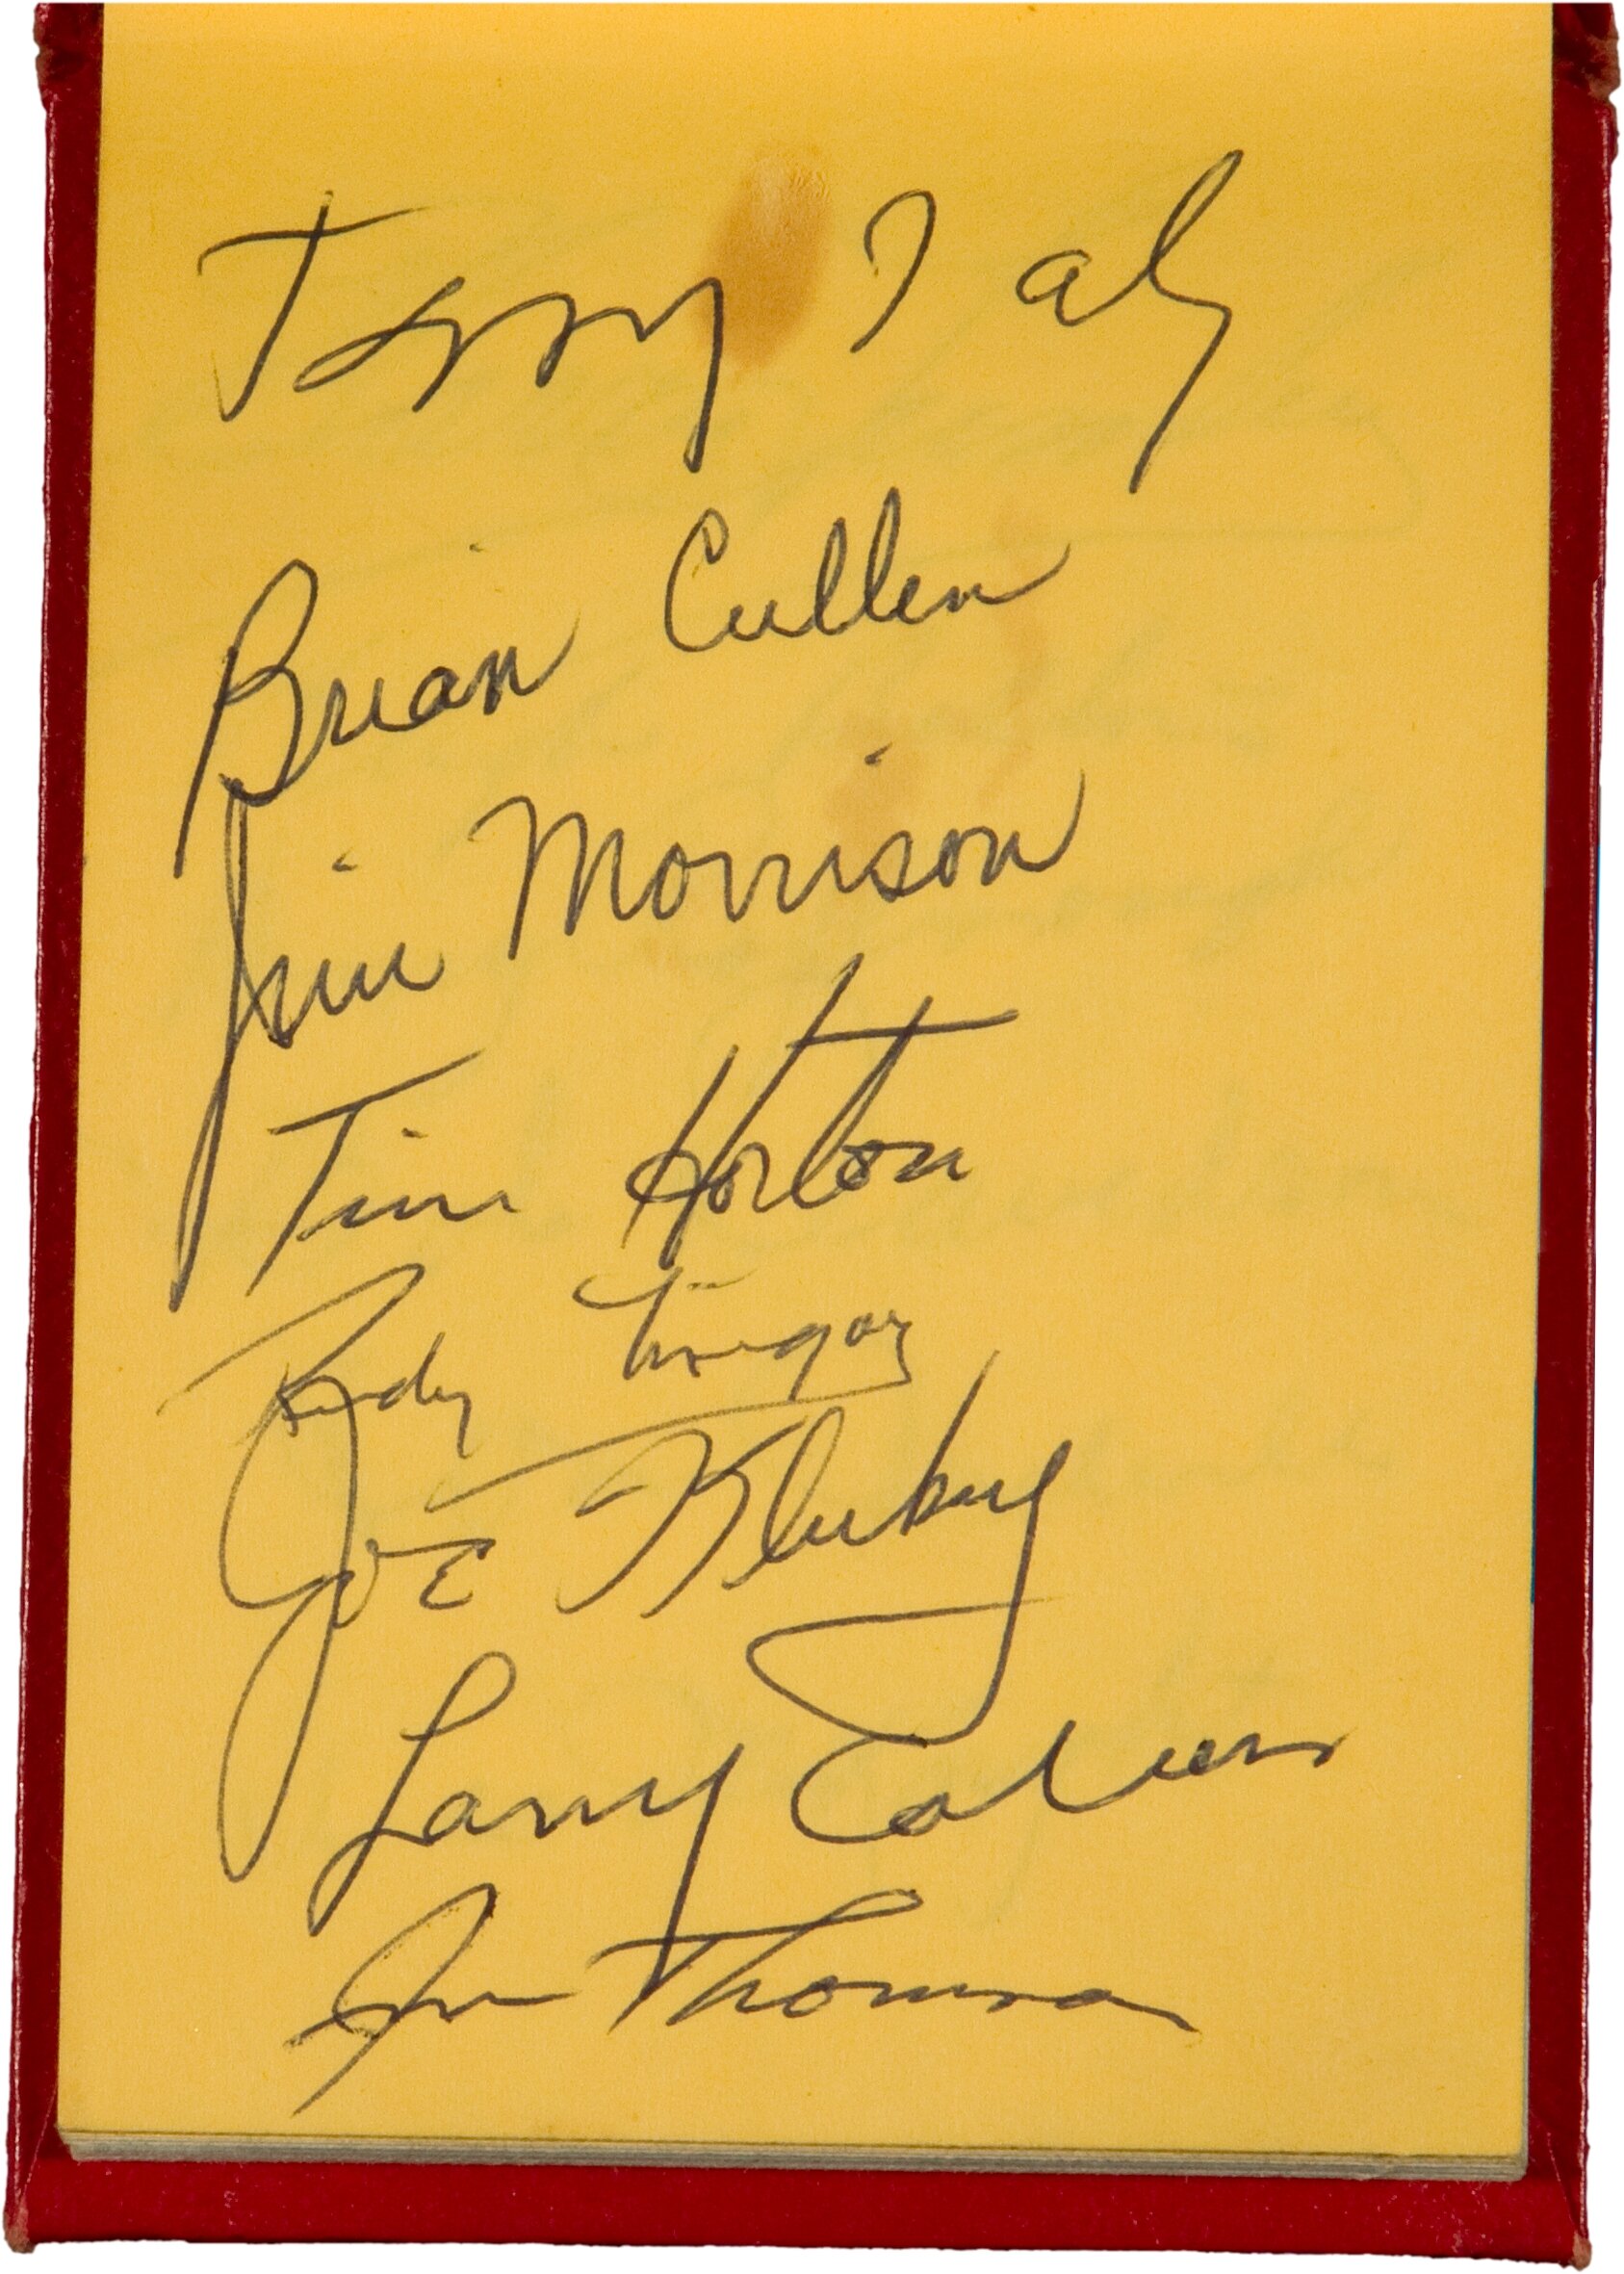 Terry Daly
Brian Cullen
Jim Morrison
Tim Horton
Rudy
Joe Klukay
Larry Cahan
Jim Thomson